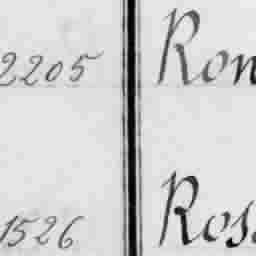 2205 Ron
1526 Ros